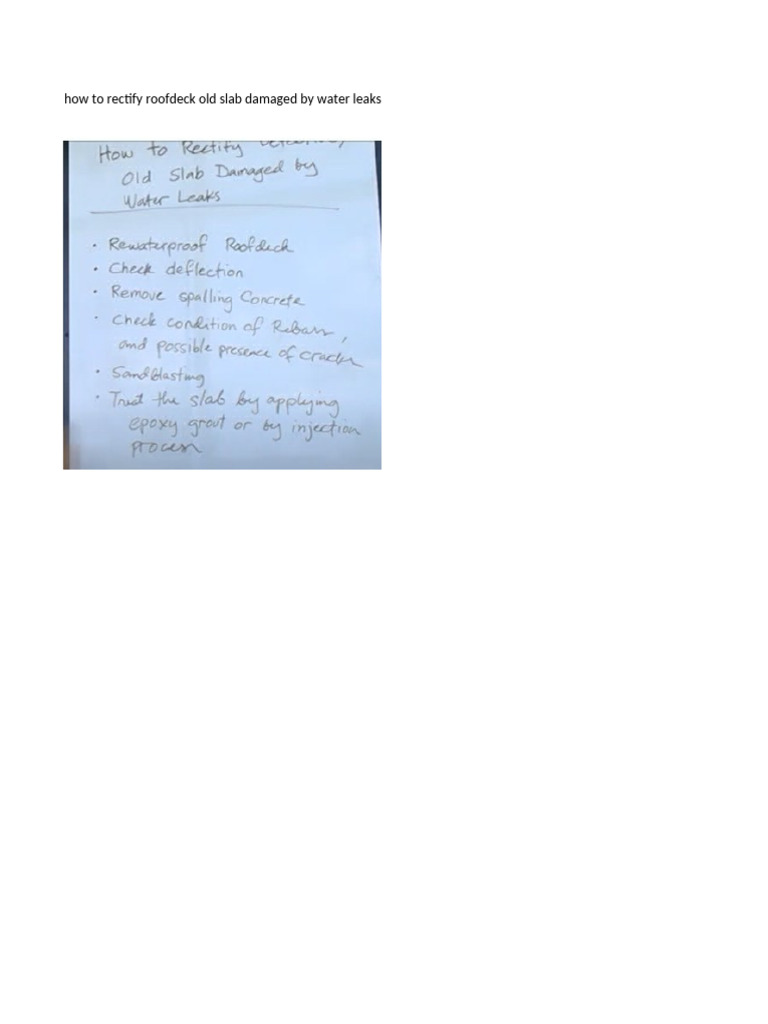 how to rectify roofdeck old slab damaged by water leaks
How to Rectify
Old Slab Damaged by
Water Leaks
• Rewaterproof Roofdeck
• Check deflection
• Remove spalling Concrete
• Check condition of Rebars,
and possible presence of cracks
• Sandblasting
• the slab by applying
epoxy grout or by injection
process